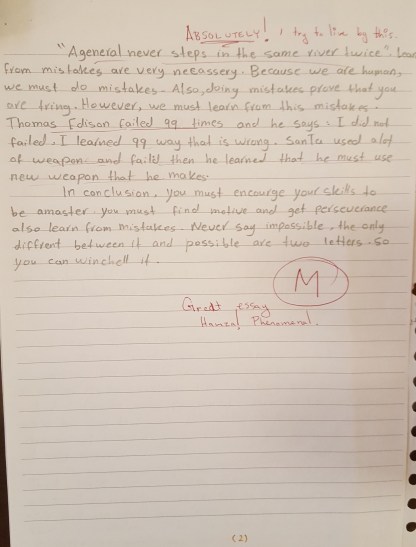 ABSOLUTELY! I try to live by this.
"Ageneral never steps in the same river twice". Lear
from mistakes are very necossery. Because we are human,
we must do mistakes. Also, doing mistakes prove that you
are tring. However, we must learn from this mistakes.
Thomas Edison failed 99 times and he says, I did not
failed, I learned 99 way that is wrong. SanTa used alot
of weapon and faild then he learned that he must use
new weapon that he makes.
In conclusion, you must encourge your skills to
be amaster. you must find motive and get perseverance
also learn from mistakes. Never say impossible, the only
diffrent between it and possible are two letters. so
you can it.
M
Great essay
Phenomenal.
(2)